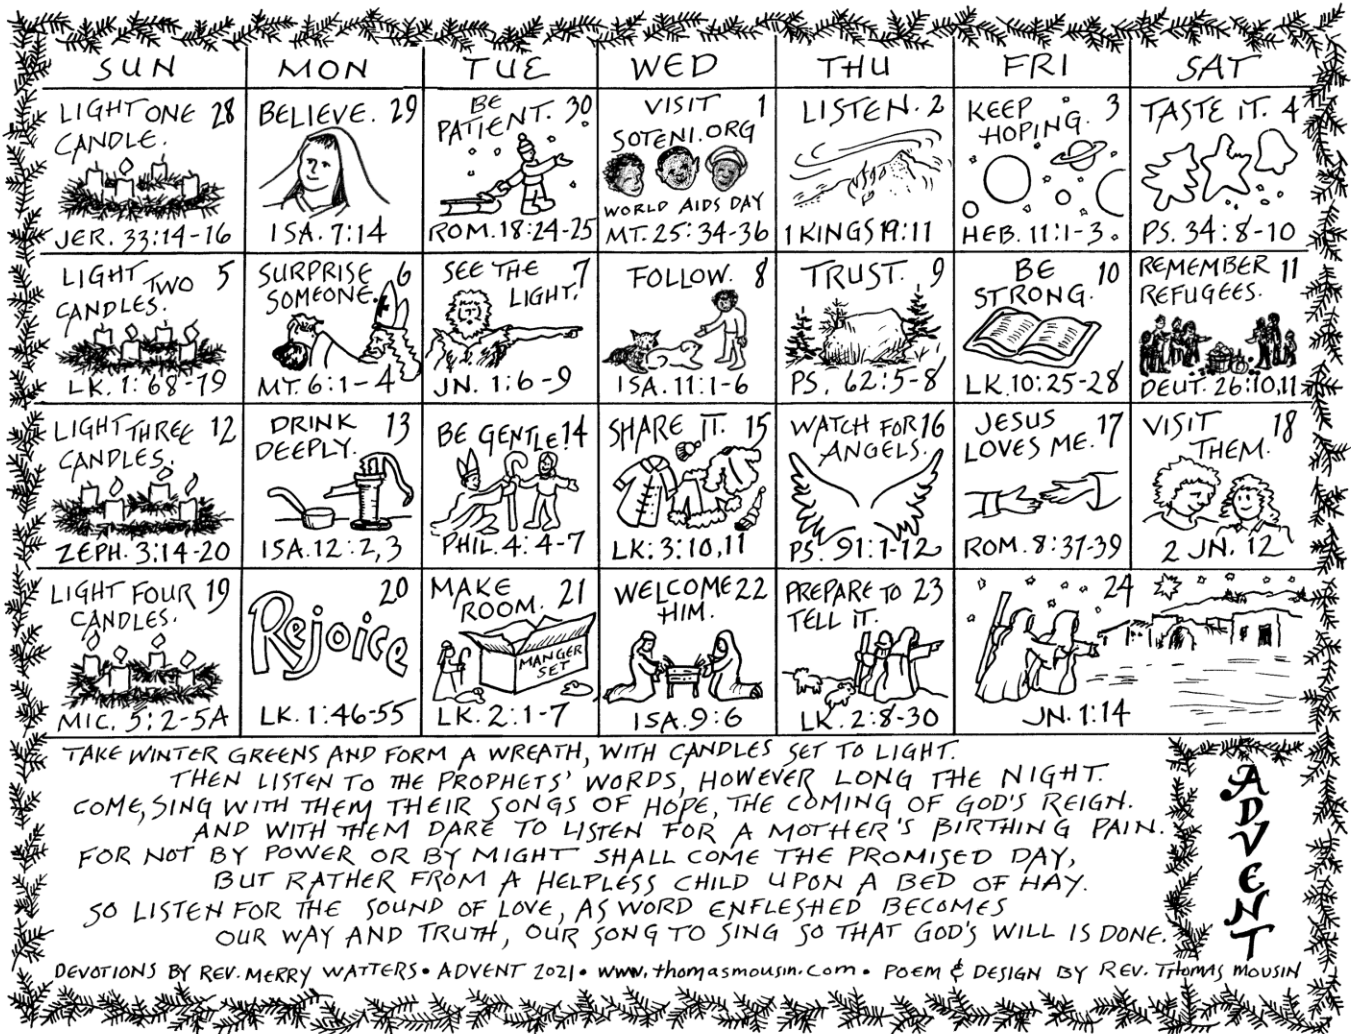 SUN MON TUE WED THU FRI SAT
LIGHT ONE 28
CANDLE.
JER. 33:14-16
BELIEVE. 29
ISA. 7:14
BE
PATIENT. 30
ROM. 18:24-25
VISIT 1
SOTENI.ORG
WORLD AIDS DAY
MT. 25:34-36
LISTEN. 2
1 KINGS 19:11
KEEP 3
HOPING.
HEB. 11:1-3.
TASTE IT. 4
PS. 34:8-10
LIGHT TWO 5
CANDLES.
LK. 1:68-79
SURPRISE 6
SOMEONE.
MT. 6:1-4
SEE THE 7
LIGHT.
JN. 1:6-9
FOLLOW. 8
ISA. 11:1-6
TRUST. 9
PS. 62:5-8
BE 10
STRONG.
LK. 10:25-28
REMEMBER 11
REFUGEES.
DEUT. 26:10,11
LIGHT THREE 12
CANDLES.
ZEPH. 3:14-20
DRINK 13
DEEPLY.
ISA. 12:2,3
BE GENTLE. 14
PHIL. 4:4-7
SHARE IT. 15
LK: 3:10,11
WATCH FOR 16
ANGELS.
PS. 91:1-12
JESUS 17
LOVES ME.
ROM. 8:37-39
VISIT 18
THEM.
2 JN. 12
LIGHT FOUR 19
CANDLES.
MIC. 5:2-5A
20
Rejoice
LK. 1:46-55
MAKE 21
ROOM.
MANGER
SET
LK. 2:1-7
WELCOME 22
HIM.
ISA. 9:6
PREPARE TO 23
TELL IT.
LK. 2:8-30
24
JN. 1:14
TAKE WINTER GREENS AND FORM A WREATH, WITH CANDLES SET TO LIGHT.
THEN LISTEN TO THE PROPHETS' WORDS, HOWEVER LONG THE NIGHT.
COME, SING WITH THEM THEIR SONGS OF HOPE, THE COMING OF GOD'S REIGN.
AND WITH THEM DARE TO LISTEN FOR A MOTHER'S BIRTHING PAIN.
FOR NOT BY POWER OR BY MIGHT SHALL COME THE PROMISED DAY,
BUT RATHER FROM A HELPLESS CHILD UPON A BED OF HAY.
SO LISTEN FOR THE SOUND OF LOVE, AS WORD ENFLESHED BECOMES
OUR WAY AND TRUTH, OUR SONG TO SING SO THAT GOD'S WILL IS DONE.
ADVENT
DEVOTIONS BY REV. MERRY WATTERS • ADVENT 2021 • www.thomasmousin.com • POEM & DESIGN BY REV. THOMAS MOUSIN